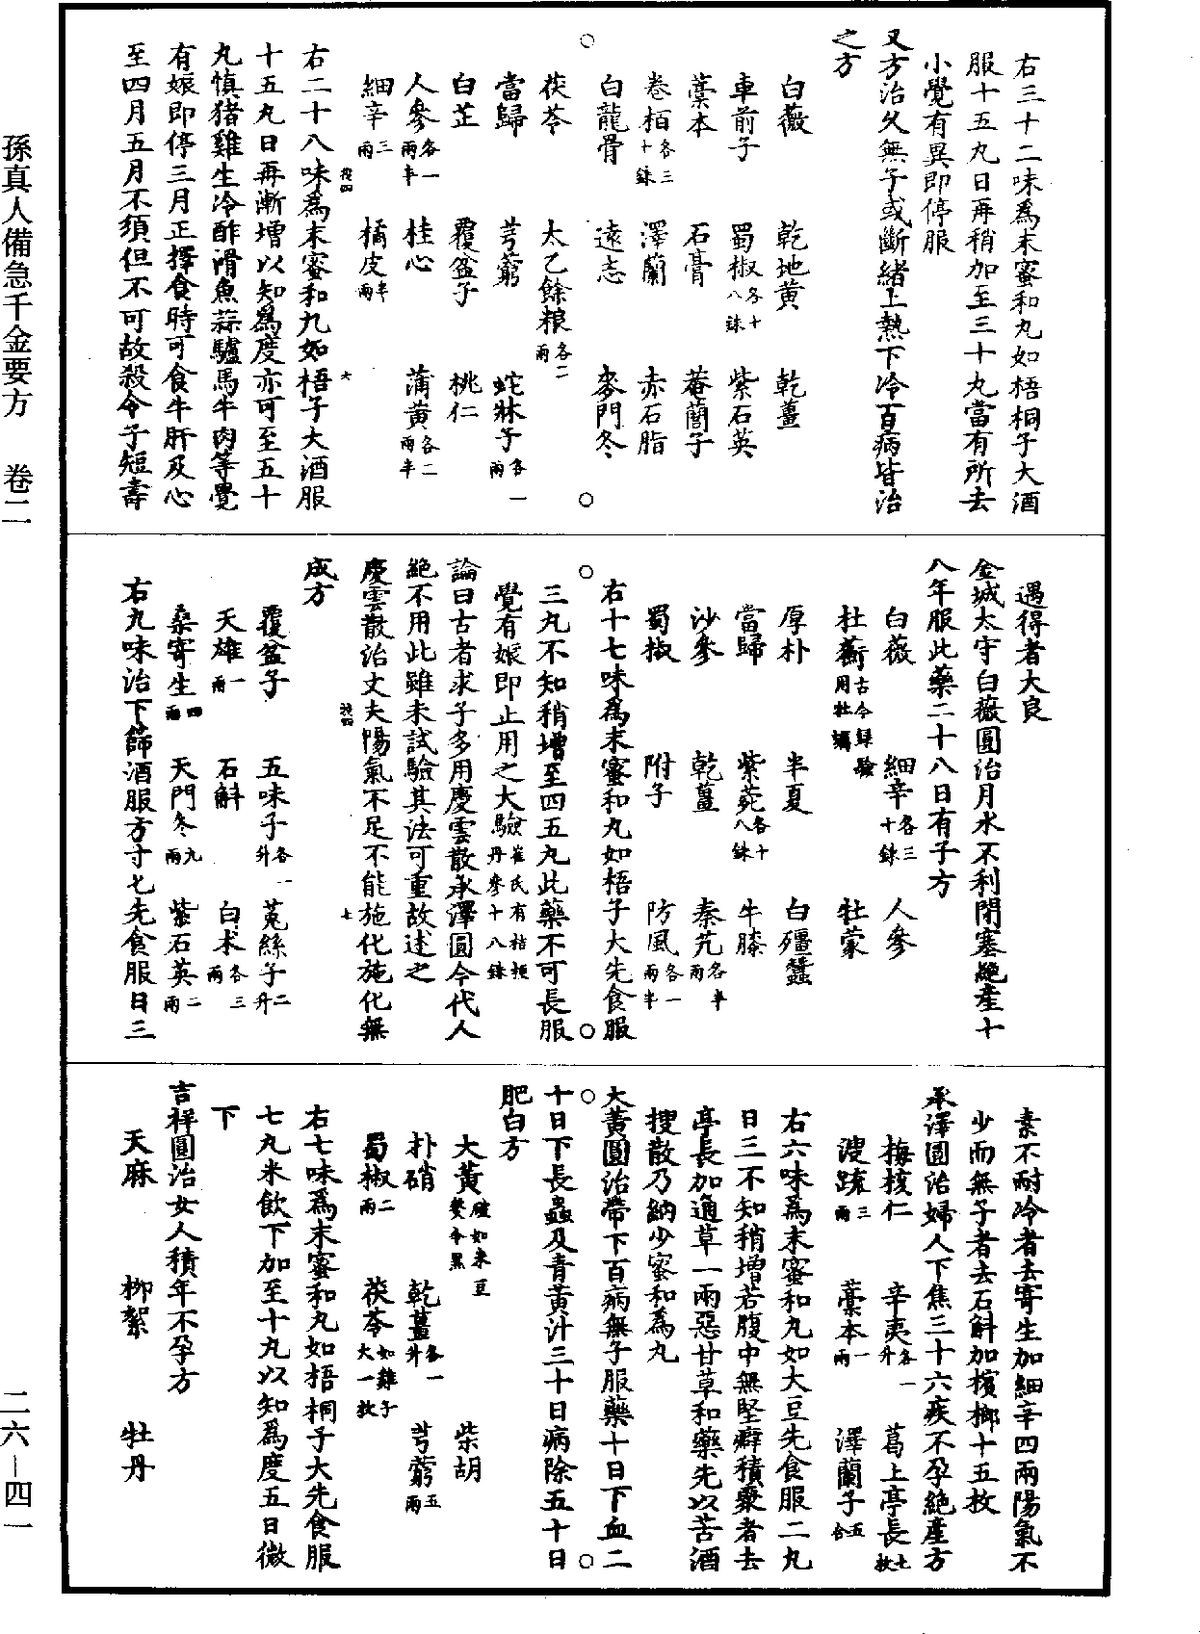 孫真人備急千金要方 卷二
二六—四一
右三十二味爲末蜜和丸如梧桐子大酒
服十五丸日再稍加至三十丸當有所去
小覺有異即停服
又方治久無子或斷緒上熱下冷百病皆治
之方
白薇 乾地黃 乾薑
車前子 蜀椒各十八銖 紫石英
藁本 石膏 菴䕡子
卷栢各三十銖 澤蘭 赤石脂
白龍骨 遠志 麥門冬
茯苓 太乙餘粮各二兩
當歸 芎藭 蛇牀子各一兩
白芷 覆盆子 桃仁
人參各一兩半 桂心 蒲黃各二兩半
細辛三兩 橘皮半兩
右二十八味爲末蜜和丸如梧子大酒服
十五丸日再漸增以知爲度亦可至五十
丸慎猪雞生冷酢滑魚蒜驢馬牛肉等覺
有娠即停三月正擇食時可食牛肝及心
至四月五月不須但不可故殺令子短壽
遇得者大良
金城太守白薇圓治月水不利閉塞絕產十
八年服此藥二十八日有子方
白薇 細辛各三十銖 人參
杜蘅古今録驗用牡蠣 牡蒙
厚朴 半夏 白殭蠶
當歸 紫菀各十八銖 牛膝
沙參 乾薑 秦艽各半兩
蜀椒 附子 防風各一兩半
右十七味爲末蜜和丸如梧子大先食服
三丸不知稍增至四五丸此藥不可長服
覺有娠即止用之大驗崔氏有桔梗丹參十八銖
論曰古者求子多用慶雲散承澤圓今代人
絕不用此雖未試驗其法可重故述之
慶雲散治丈夫陽氣不足不能施化施化無
成方
覆盆子 五味子各一升 菟絲子二升
天雄一兩 石斛 白朮各三兩
桑寄生四兩 天門冬九兩 紫石英二兩
右九味治下篩酒服方寸匕先食服日三
素不耐冷者去寄生加細辛四兩陽氣不
少而無子者去石斛加檳榔十五枚
承澤圓治婦人下焦三十六疾不孕絕產方
梅核仁 辛夷各一升 葛上亭長七枚
溲疏三兩 藁本一兩 澤蘭子五合
右六味爲末蜜和丸如大豆先食服二丸
日三不知稍增若腹中無堅癖積聚者去
亭長加通草一兩惡甘草和藥先以苦酒
搜散乃納少蜜和爲丸
大黃圓治帶下百病無子服藥十日下血二
十日下長蟲及青黃汁三十日病除五十日
肥白方
大黃破如米豆熬令黑 柴胡
朴硝 乾薑各一升 芎藭五兩
蜀椒二兩 茯苓如雞子大一枚
右七味爲末蜜和丸如梧桐子大先食服
七丸米飲下加至十丸以知爲度五日微
下
吉祥圓治女人積年不孕方
天麻 柳絮 牡丹